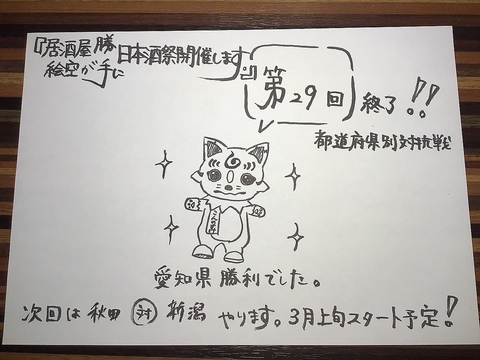 『居酒屋 絵空が勝手に日本酒祭開催します。』
第29回 終了!!
都道府県別対抗戦
愛知県勝利でした。
次回は 秋田 対 新潟 やります。3月上旬スタート予定!